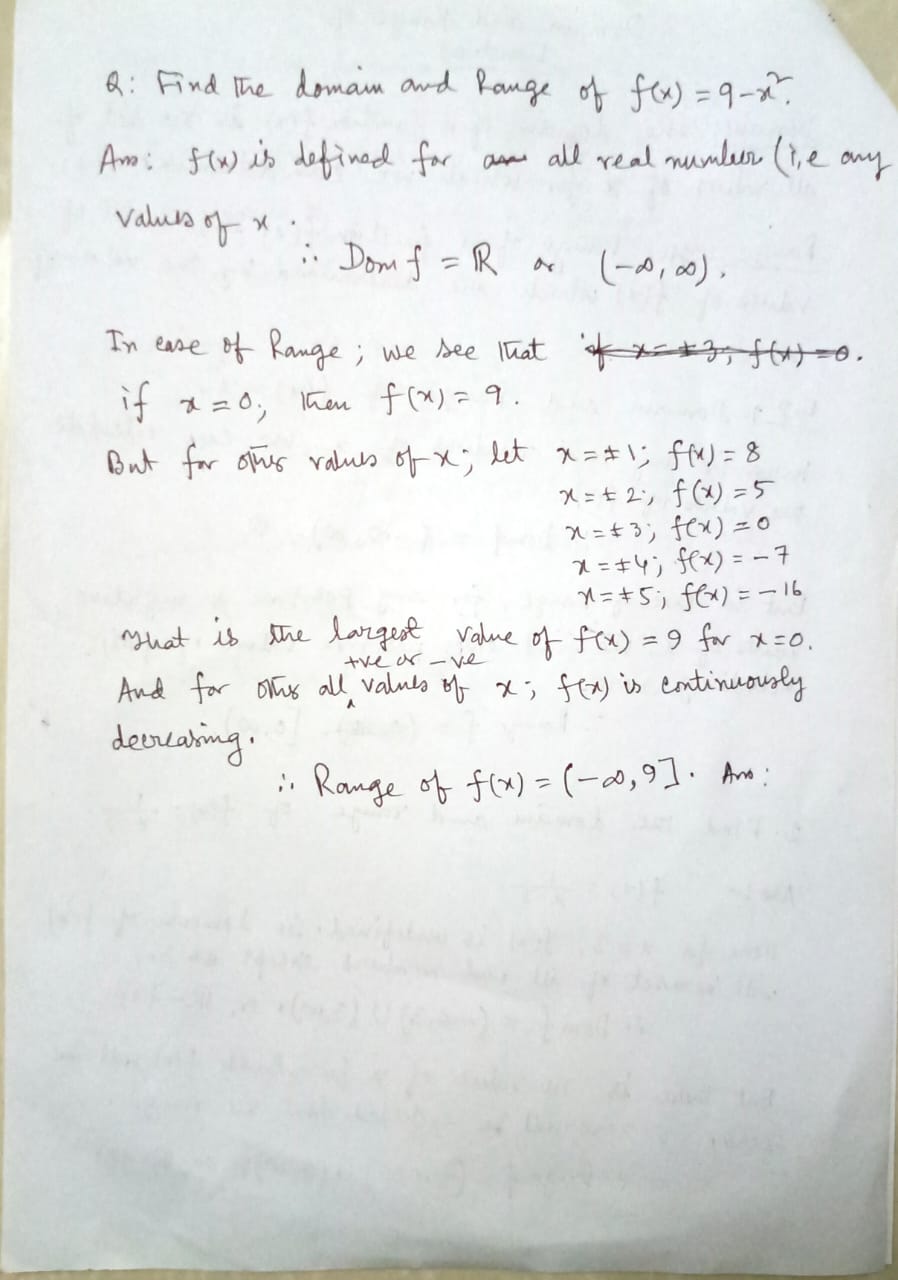 Q: Find the domain and Range of f(x) = 9-x².
Ans: f(x) is defined for all real number (i,e any
values of x.
∴ Dom f = ℝ or (-∞, ∞).
In case of Range; we see that if x = ±3; f(x) = 0.
if x = 0; then f(x) = 9.
But for other values of x; let x = ±1; f(x) = 8
x = ±2; f(x) = 5
x = ±3; f(x) = 0
x = ±4; f(x) = -7
x = ±5; f(x) = -16
That is the largest value of f(x) = 9 for x=0.
+ve or -ve
And for other all values of x; f(x) is continuously
decreasing.
∴ Range of f(x) = (-∞, 9]. Ans: